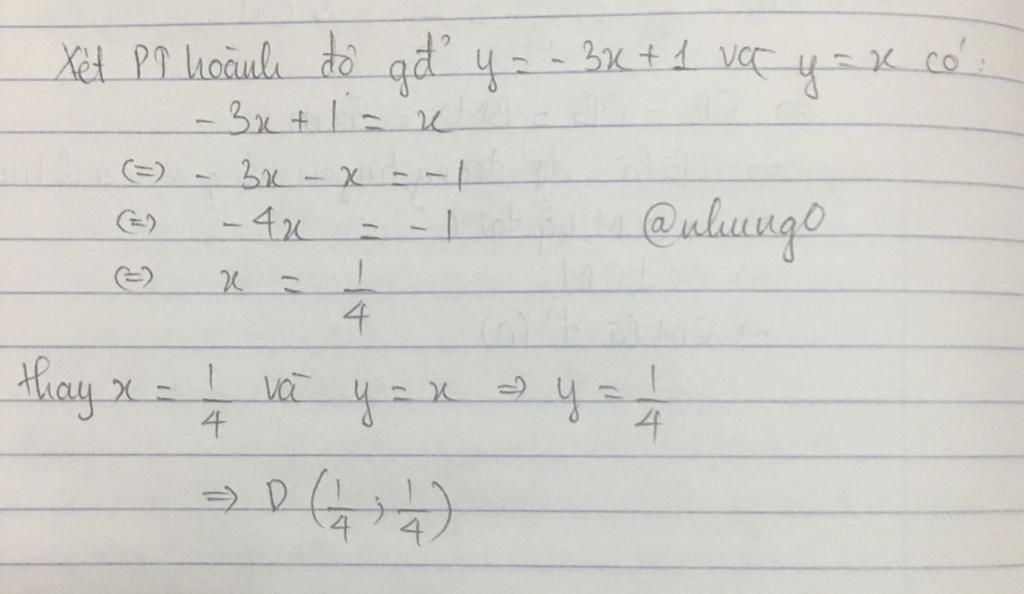 Xét PT hoành độ gđ' y = - 3x + 1 và y = x có:
- 3x + 1 = x
(=) - 3x - x = -1
(=) - 4x = - 1
@nhung0
(=) x = 1/4
thay x = 1/4 và y = x => y = 1/4
=> D (1/4 ; 1/4)